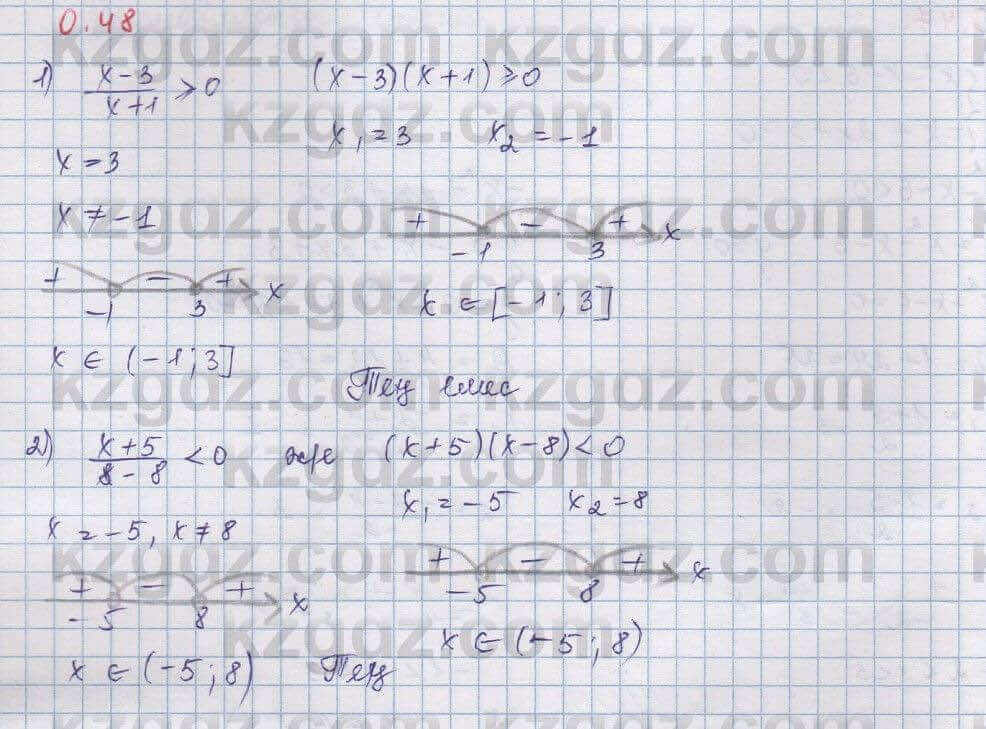 0.48
1) (x-3)/(x+1) ≥ 0    (x-3)(x+1) ≥ 0
x = 3    x₁ = 3    x₂ = -1
x ≠ -1
+ - + x
-1 3
+ - + x
-1 3
x ∈ [-1; 3]
x ∈ (-1; 3]
Тең емес
2) (x+5)/(8-8) < 0 және (x+5)(x-8) < 0
x₁ = -5    x₂ = 8
x = -5, x ≠ 8
+ - + x
-5 8
+ - + x
-5 8
x ∈ (-5; 8)
x ∈ (-5; 8) Тең
kzgdz.com